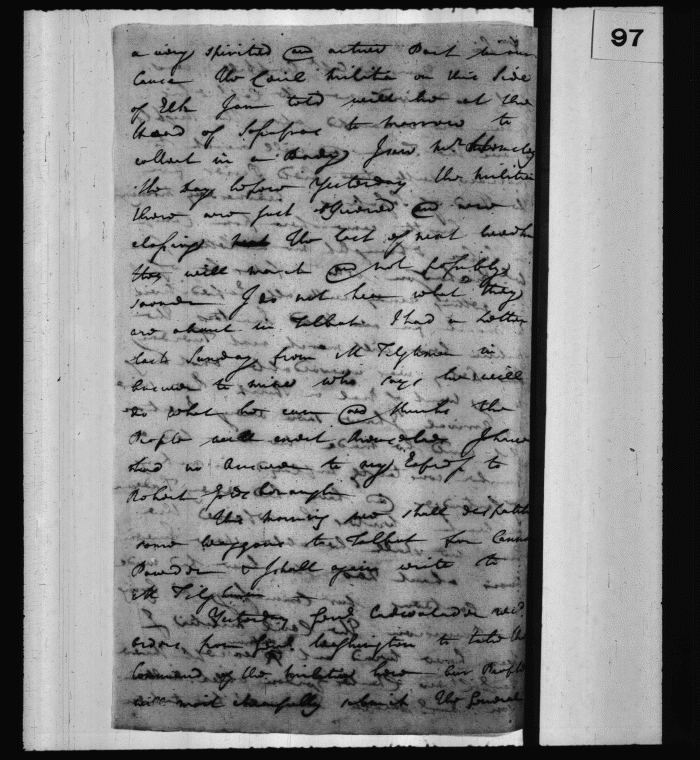 97
a very spirited and active Part in our
Cause The Cecil Militia on this Side
of Elk I am told will be at the
Head of Sasafras to morrow to
collect in a Body I saw Mr
the Day before Yesterday the Militia
there are just and are
the last of next week
they will march and not possibly
sooner I do not hear what they
are about in Talbot I had a Letter
last Sunday from M Tilghman in
Answer to mine who says he will
do what he can and thinks the
People will I have
had no Answer to my Express to
Robert Goldsborough
This morning we shall despatch
some Waggons to Talbot for Cannon
Powder & I shall again write to
M Tilghman
Yesterday Genl Cadwalader recd
orders from Genl Washington to take the
Command of the Militia here our People
will most chearfully submit The General